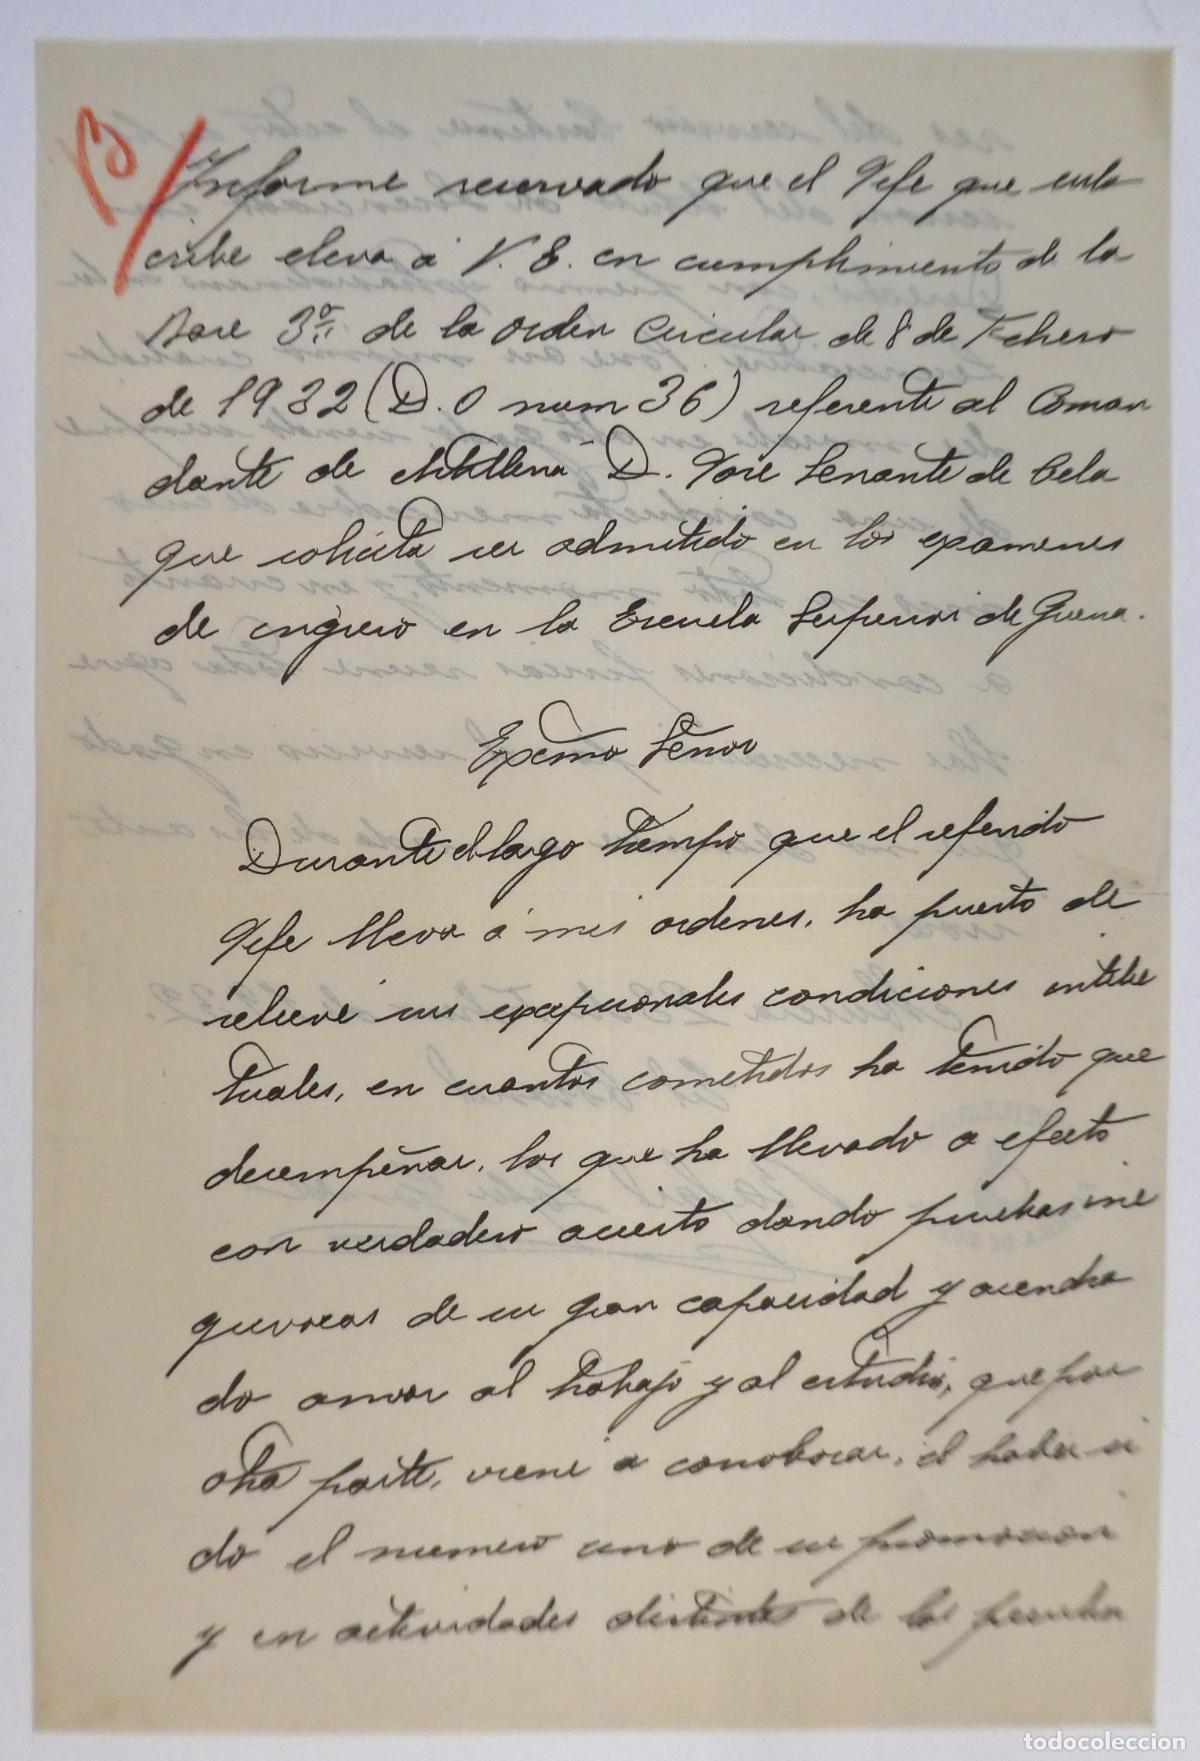 B
Informe reservado que el Jefe que subs
cribe eleva á V. E. en cumplimiento de la
Base 3ª de la orden Circular de 8 de Febrero
de 1932 (D. O num 36) referente al Coman
dante de Artilleria D. Jose Senante de Cela
que solicita ser admitido en los examenes
de ingreso en la Escuela Superior de Guerra.
Excmo Señor
Durante el largo tiempo que el referido
Jefe lleva á mis ordenes, ha puesto de
relieve sus excepcionales condiciones intelec
tuales, en cuantos cometidos ha tenido que
desempeñar, los que ha llevado a efecto
con verdadero acierto dando pruebas ine
quivocas de su gran capacidad y acendra
do amor al trabajo y al estudio, que por
otra parte, viene a corroborar, el haber si
do el numero uno de su promocion
y en actividades distintas de las peculia
todocoleccion